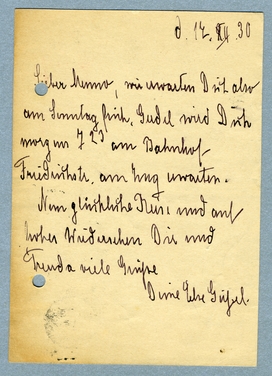 d. 17. XII. 30
Lieber Menno, wir erwarten Dich also
am Sonntag früh, Gudel wird Dich
morgens 7 23 am Bahnhof
Friedrichstr. am Zug erwarten.
Nun glückliche Reise und auf
frohes Wiedersehen Dir und
viele Grüße
Deine Else